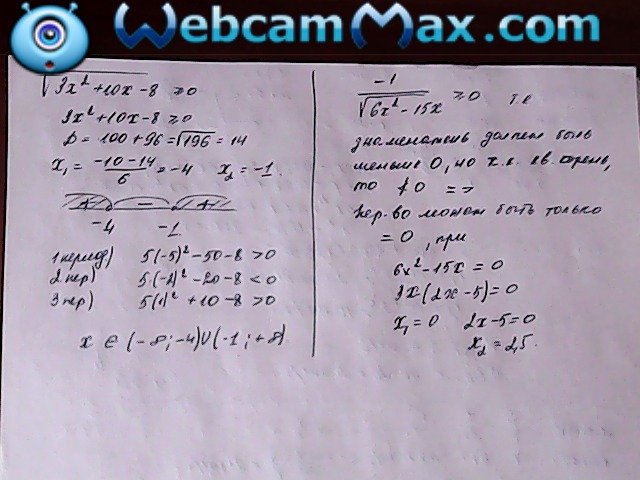 WebcamMax.com
√3x² + 10x - 8 ≥ 0
3x² + 10x - 8 ≥ 0
D = 100 + 96 = √196 = 14
x₁ = (-10 - 14)/6 = -4   x₂ = -1.
+ - +
-4 -1
1 период) 5(-5)² - 50 - 8 > 0
2 пер) 5(-2)² - 20 - 8 < 0
3 пер) 5(1)² + 10 - 8 > 0
x ∈ (-∞; -4) ∪ (-1; +∞)
-1/√6x² - 15x ≥ 0   т.е
знаменатель должен быть
меньше 0, но т.к. кв. корень,
то ≮ 0 =>
Нер-во может быть только
= 0, при
6x² - 15x = 0
3x(2x - 5) = 0
x₁ = 0   2x - 5 = 0
x₂ = 2,5.